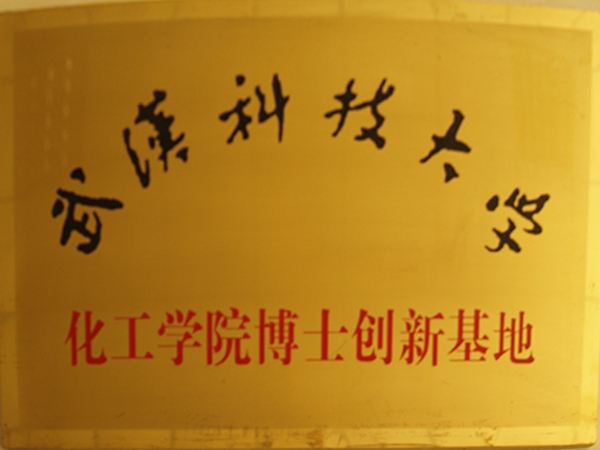 武漢科技大学
化工学院博士创新基地